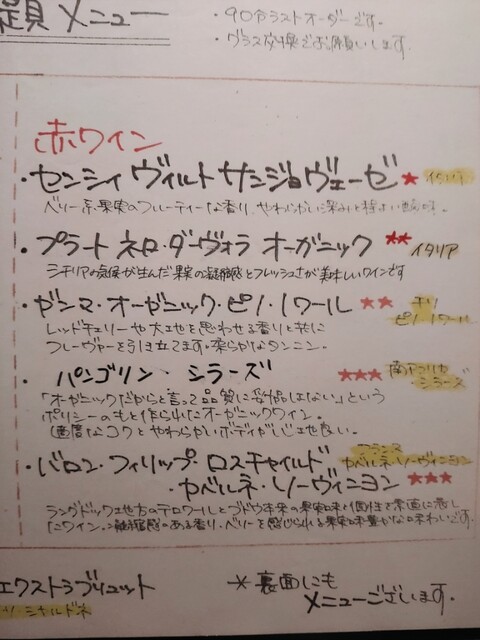 題メニュー
・90分ラストオーダーです。
・グラス交換でお願いします。
赤ワイン
・センシィ ヴィルト サンジョヴェーゼ ★ イタリア
ベリー系果実のフルーティーな香り、やわらかい渋みと程よい酸味。
・プラート ネロ・ダーヴォラ オーガニック ★★ イタリア
シチリアの気候が生んだ果実の凝縮感とフレッシュさが美味しいワインです
・ガンマ・オーガニック・ピノ・ノワール ★★ チリ
ピノ・ノワール
レッドチェリーや大地を思わせる香りと共に
フレーヴァーを引き立てます。柔らかなタンニン。
・パンゴリン・シラーズ ★★★ 南アフリカ
シラーズ
「オーガニックだからと言って品質に妥協はしない」という
ポリシーのもと作られたオーガニックワイン。
適度なコクとやわらかいボディが心地良い。
・バロン・フィリップ・ロスチャイルド フランス
カベルネ・ソーヴィニヨン
・カベルネ・ソーヴィニヨン ★★★
ラングドック地方のテロワールとブドウ本来の果実味と個性を素直に表し
たワイン。凝縮感のある香り、ベリーを感じられる果実味豊かな味わいです。
エクストラブリュット
シャルドネ
※裏面にも
メニューございます。